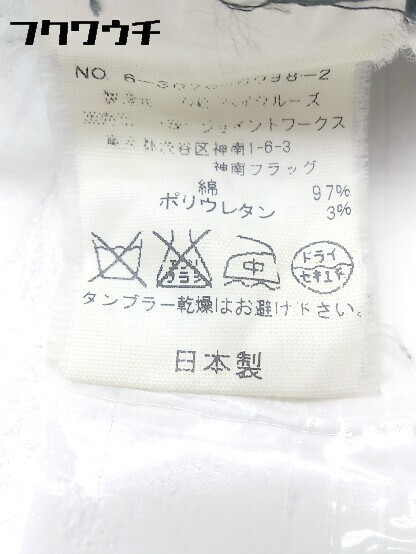 フクワウチ
NO. 6-30
98-2
ルーズ
ジョイントワークス
渋谷区神南1-6-3
神南フラッグ
綿 97%
ポリウレタン 3%
中
ドライ
セキユ系
タンブラー乾燥はお避け下さい。
日本製